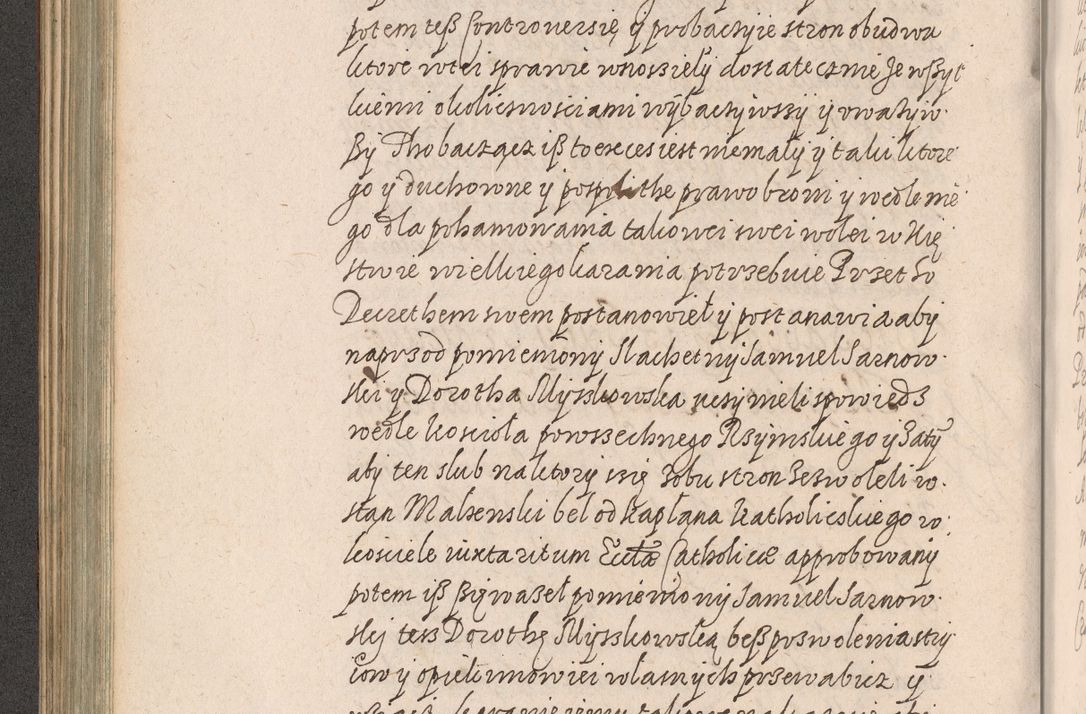 potem teß Controuersię y probacyie stron obudwu
ktore wtei sprawie wnossiely dostatecznie Je wßyt
kiemi okolicznościami wybaczywssy y vważyw
ßy Tho baczącz iß to exces iest niemały y taki ktore
go y duchowne y pospolithe prawo broni y wedle nie
go dla pohamowania takowei swei wolei w Xię
stwie wielkiego karania potrzebuie Przetho
Decrethem swem postanowieł y postanawia aby
naprzod pomieniony Slachetny Samuel Sarnow
ski y Dorotha Myszkowska uczynieli spowiedz
wedle kosciola powszechnego Rzymskiego y Zaty
aby ten slub na ktory isię Zobu stron Zeswoleli w
stan Malzenski bel od kapłana katholicskiego w
kosciele iuxta ritum Ecclae Catholicae approbowany
potem iß ßię wazeł pomieniony Samuel Sarnow
skj tess Dorothę Myszkowską beß poswolenia stry
iow y opiekunow iei własnych przewabicz y